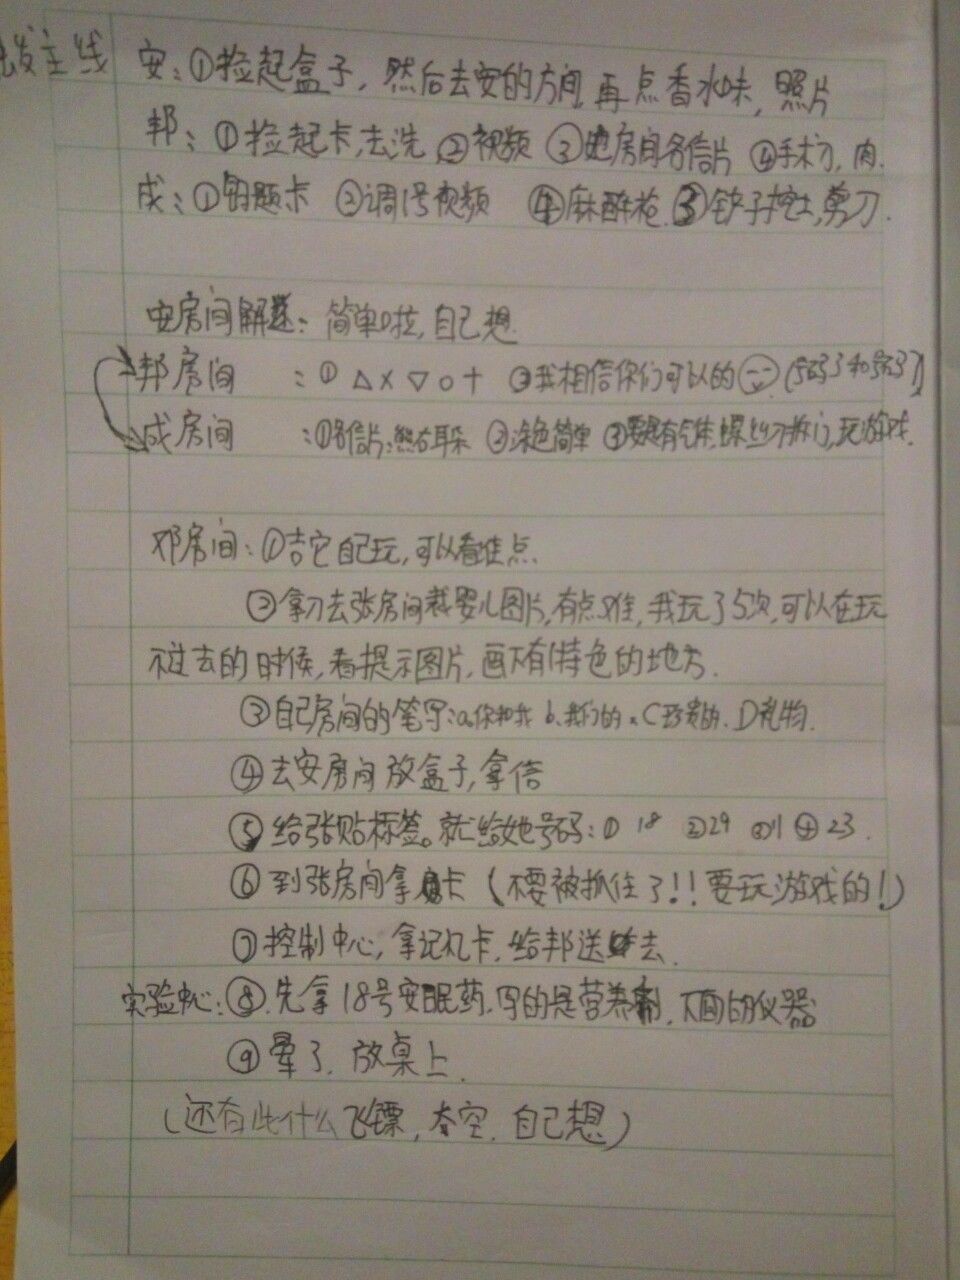 发主线 安:①捡起盒子,然后去安的方间再点香水味,照片
邦:①捡起卡,去洗 ②视频 ③她房间名信片 ④手术刀,肉.
成:①卡 ②调1号视频 ④麻醉枪 ③铲子挖土,剪刀.
安房间解谜:简单啦,自己想.
邦房间 :① △×▽○+ ③我相信你们可以的
成房间 :①名信片:熊右耳朵 ②涂色简单 ③有气体,螺丝刀拆门,玩游戏.
邓房间:①吉它自己玩,可以看焦点.
②拿刀去张房间裁婴儿图片,有点难,我玩了5次,可以在玩
不过去的时候,看提示图片,画下有特色的地方.
③自己房间的笔写:a.你和我 b.我们的.C珍贵的.D礼物.
④去安房间放盒子,拿信
⑤给张贴标签。就给她号码:① 18 ②29 ③11 ④23.
⑥到张房间拿卡(不要被抓住了!!要玩游戏的!)
⑦控制中心,拿记忆卡,给邦送去.
实验中心:⑧.先拿18号安眠药.写的是营养剂,下面的仪器
⑨晕了.放桌上.
(还有些什么飞镖,夺空.自己想)